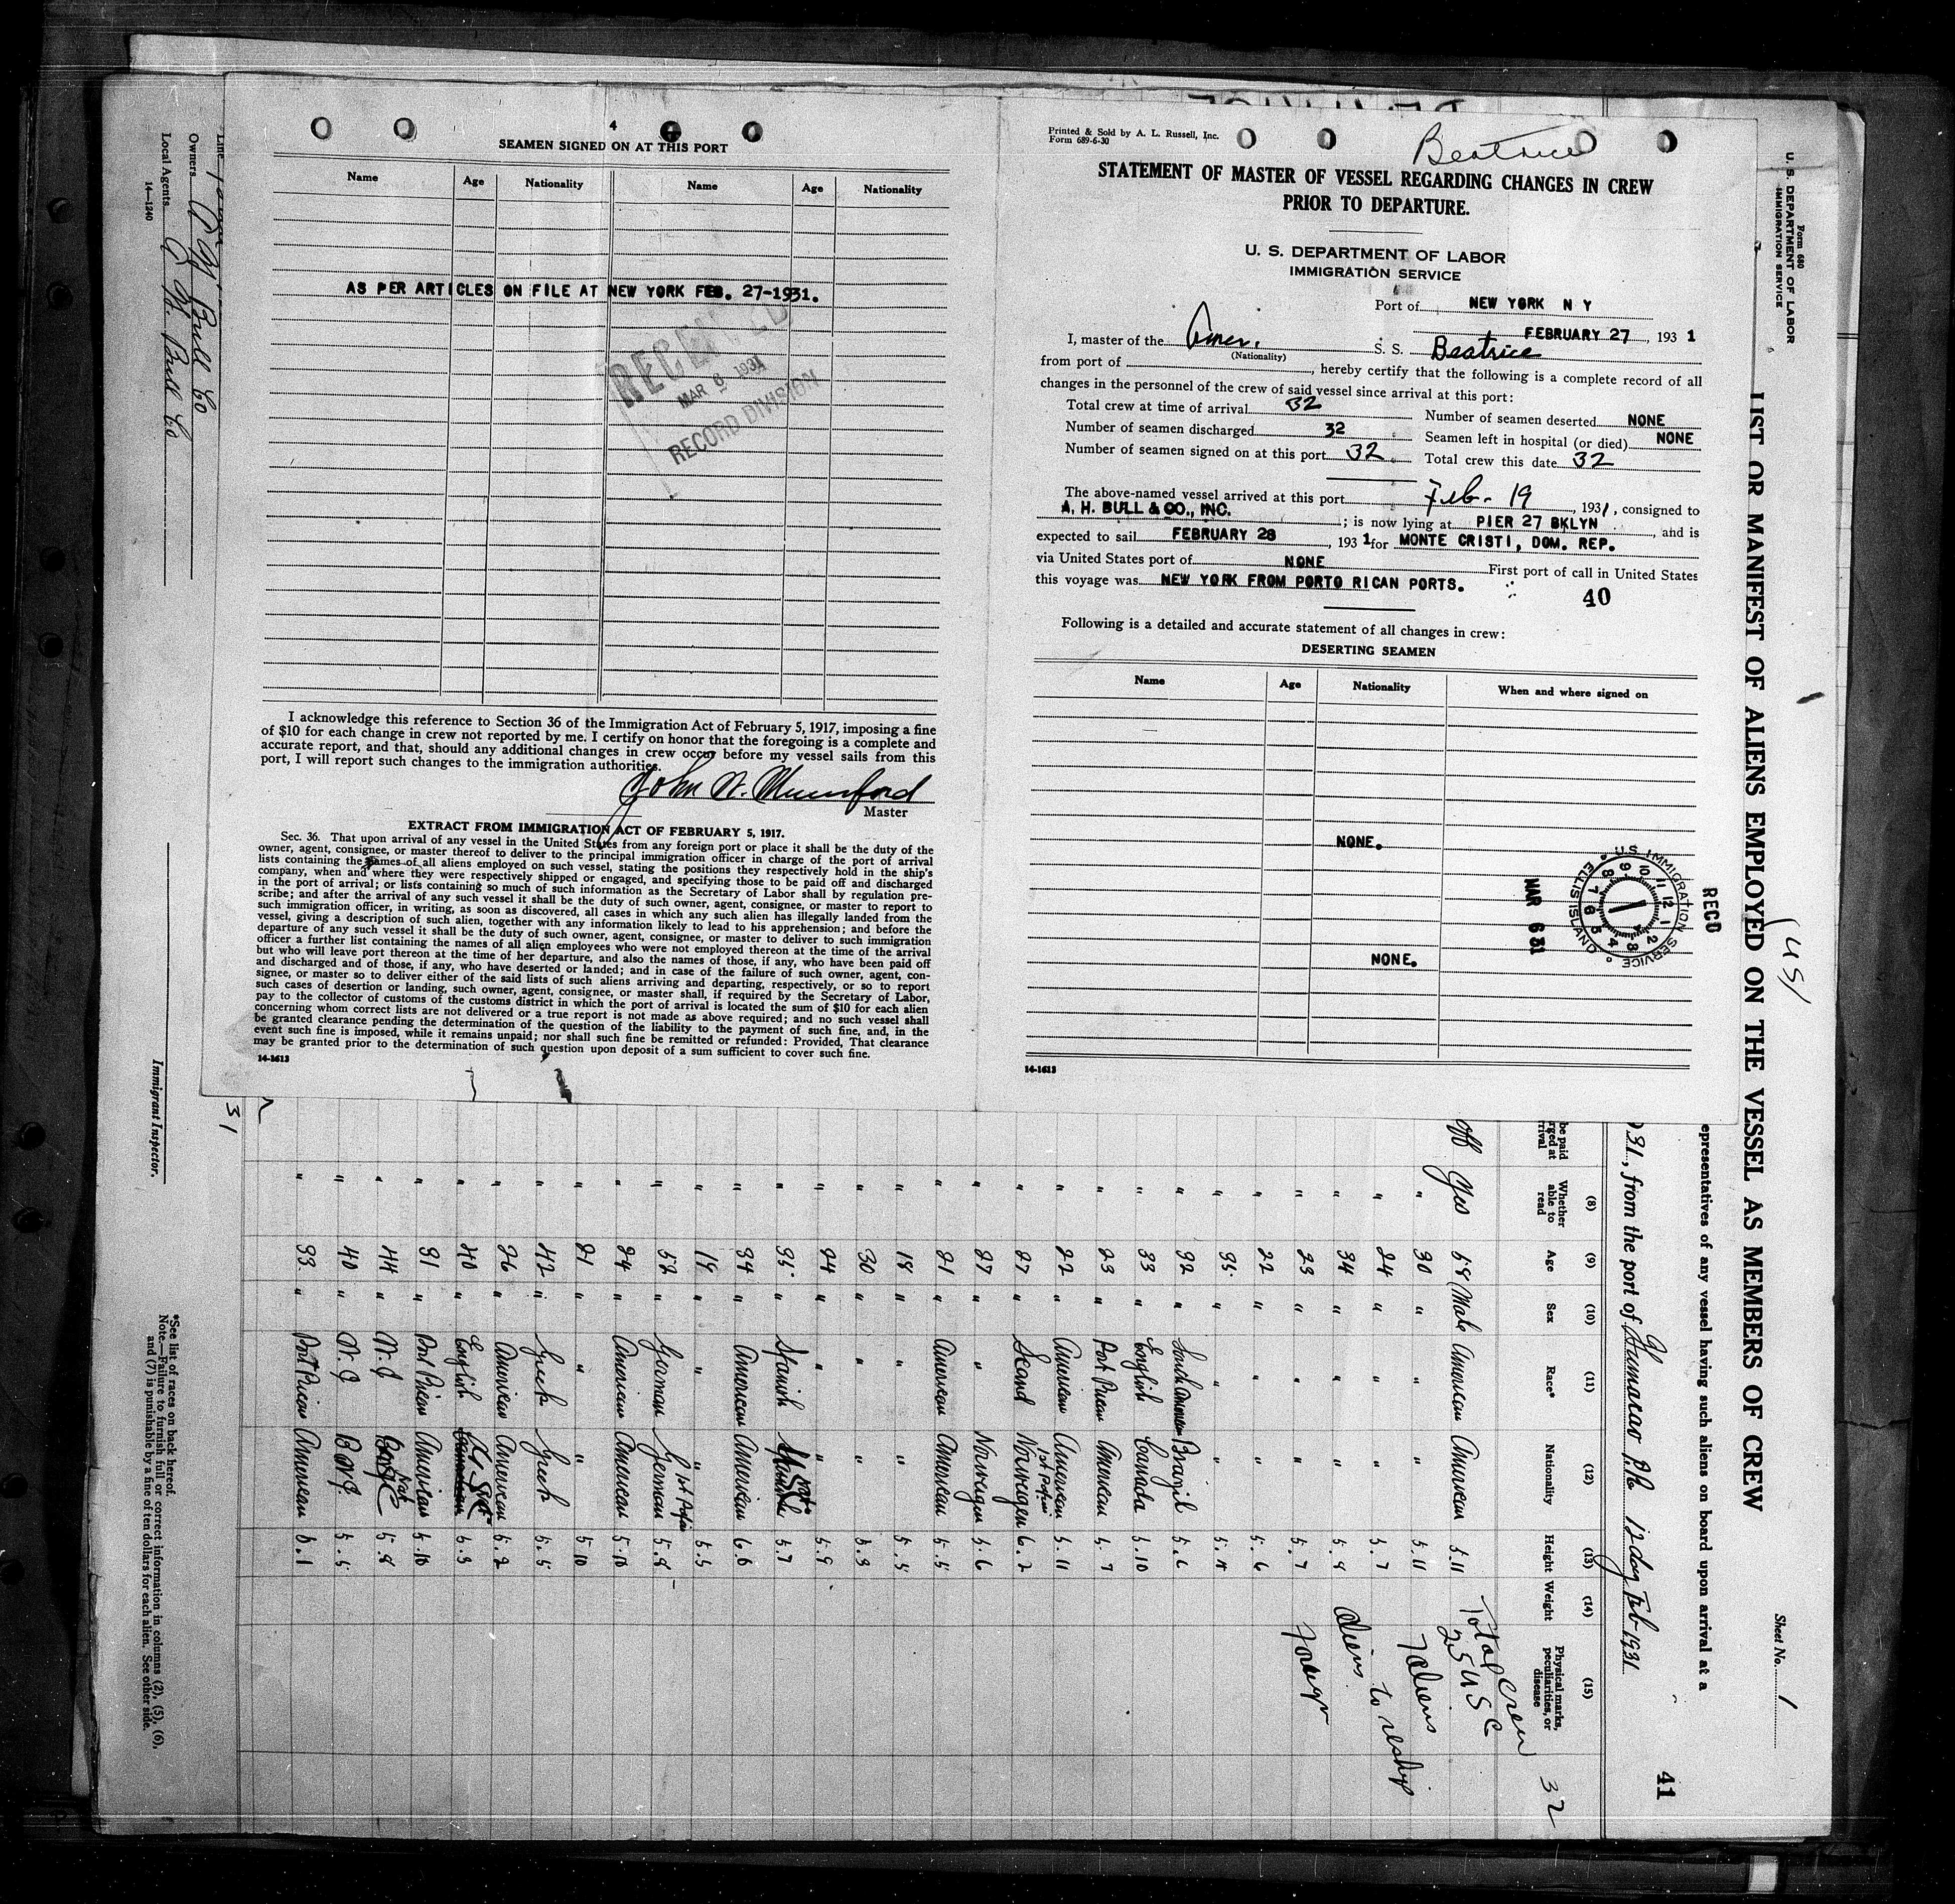 4
SEAMEN SIGNED ON AT THIS PORT
Name Age Nationality Name Age Nationality
AS PER ARTICLES ON FILE AT NEW YORK FEB. 27-1931.
RECEIVED
MAR 6 1931
RECORD DIVISION
I acknowledge this reference to Section 36 of the Immigration Act of February 5, 1917, imposing a fine
of $10 for each change in crew not reported by me. I certify on honor that the foregoing is a complete and
accurate report, and that, should any additional changes in crew occur before my vessel sails from this
port, I will report such changes to the immigration authorities.
John W. Mumford
Master
EXTRACT FROM IMMIGRATION ACT OF FEBRUARY 5, 1917.
Sec. 36. That upon arrival of any vessel in the United States from any foreign port or place it shall be the duty of the
owner, agent, consignee, or master thereof to deliver to the principal immigration officer in charge of the port of arrival
lists containing the names of all aliens employed on such vessel, stating the positions they respectively hold in the ship's
company, when and where they were respectively shipped or engaged, and specifying those to be paid off and discharged
in the port of arrival; or lists containing so much of such information as the Secretary of Labor shall by regulation pre-
scribe; and after the arrival of any such vessel it shall be the duty of such owner, agent, consignee, or master to report to
such immigration officer, in writing, as soon as discovered, all cases in which any such alien has illegally landed from the
vessel, giving a description of such alien, together with any information likely to lead to his apprehension; and before the
departure of any such vessel it shall be the duty of such owner, agent, consignee, or master to deliver to such immigration
officer a further list containing the names of all alien employees who were not employed thereon at the time of the arrival
but who will leave port thereon at the time of her departure, and also the names of those, if any, who have been paid off
and discharged and of those, if any, who have deserted or landed; and in case of the failure of such owner, agent, con-
signee, or master so to deliver either of the said lists of such aliens arriving and departing, respectively, or so to report
such cases of desertion or landing, such owner, agent, consignee, or master shall, if required by the Secretary of Labor,
pay to the collector of customs of the customs district in which the port of arrival is located the sum of $10 for each alien
concerning whom correct lists are not delivered or a true report is not made as above required; and no such vessel shall
be granted clearance pending the determination of the question of the liability to the payment of such fine, and, in the
event such fine is imposed, while it remains unpaid; nor shall such fine be remitted or refunded: Provided, That clearance
may be granted prior to the determination of such question upon deposit of a sum sufficient to cover such fine.
14-1613
Printed & Sold by A. L. Russell, Inc.
Form 689-6-30
Beatrice
STATEMENT OF MASTER OF VESSEL REGARDING CHANGES IN CREW
PRIOR TO DEPARTURE.
U. S. DEPARTMENT OF LABOR
IMMIGRATION SERVICE
Port of NEW YORK N Y
FEBRUARY 27, 1931
I, master of the Amer. S. S. Beatrice
(Nationality)
from port of , hereby certify that the following is a complete record of all
changes in the personnel of the crew of said vessel since arrival at this port:
Total crew at time of arrival 32 Number of seamen deserted NONE
Number of seamen discharged 32 Seamen left in hospital (or died) NONE
Number of seamen signed on at this port 32 Total crew this date 32
The above-named vessel arrived at this port Feb. 19, 1931, consigned to
A. H. BULL & CO., INC. ; is now lying at PIER 27 BKLYN, and is
expected to sail FEBRUARY 28, 1931 for MONTE CRISTI, DOM. REP.
via United States port of NONE First port of call in United States
this voyage was NEW YORK FROM PORTO RICAN PORTS.
40
Following is a detailed and accurate statement of all changes in crew:
DESERTING SEAMEN
Name Age Nationality When and where signed on
NONE.
NONE.
14-1613
U.S. IMMIGRATION SERVICE ELLIS ISLAND
REC'D
MAR 6 31
Form 680
U. S. DEPARTMENT OF LABOR
IMMIGRATION SERVICE
LIST OR MANIFEST OF ALIENS EMPLOYED ON THE VESSEL AS MEMBERS OF CREW
(US)
Sheet No. 1
41
epresentatives of any vessel having such aliens on board upon arrival at a
931, from the port of Humacao PR 12 day Feb 1931
(8) (9) (10) (11) (12) (13) (14) (15)
be paid
rged at
rival
Whether able to read Age Sex Race* Nationality Height Weight Physical marks, peculiarities, or disease
off Yes 58 Male American American 5.11
" 30 " " " 5.11
" 24 " " " 5.7
" 34 " " " 5.8
" 23 " " " 5.7
" 22 " " " 5.6
" 35 " " "
" 32 " South American Brazil 5.6
" 33 " English Canada 5.10
" 23 " Port Rican American 5.7
" 22 " American American 5.11
" 27 " Scand Norweigen 6.2
1st Papers
" 27 " " Norweigen 5.6
" 21 " American American 5.5
" 18 " " " 5.5
" 30 " " "
" 24 " " " 5.9
" 35 " Spanish USC 5.7
" 34 " American American
" 19 " " " 5.5
" 52 " German German 5.8
" 24 " American American 5.10
" 21 " " " 5.10
" 42 " Greek Greek 5.5
" 26 " American American 5.2
" 40 " English 5.3
" 31 " Port Rican American 5.10
" 44 " W. I 5.8
" 40 " W. I 5.5
" 33 " Port Rican American 5.1
Total crew 32
25 USC
7 Aliens
Aliens to reship
Foreign
Line
Owners A H Bull Co
Local Agents A H. Bull Co
14-1240
31
Immigrant Inspector.
*See list of races on back hereof.
Note.—Failure to furnish full or correct information in columns (2), (5), (6),
and (7) is punishable by a fine of ten dollars for each alien. See other side.